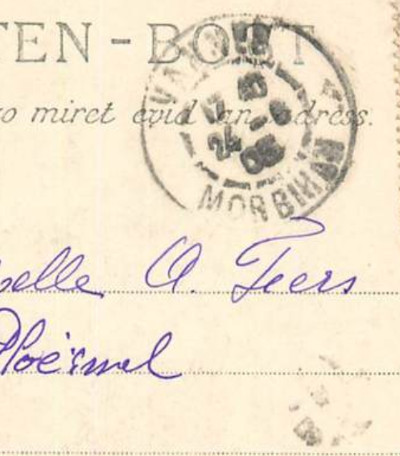 TEN-BOST
o miret evid an adress.
VANNES
17
24 -8
05
MORBIHAN
elle A. Feers
Ploërmel